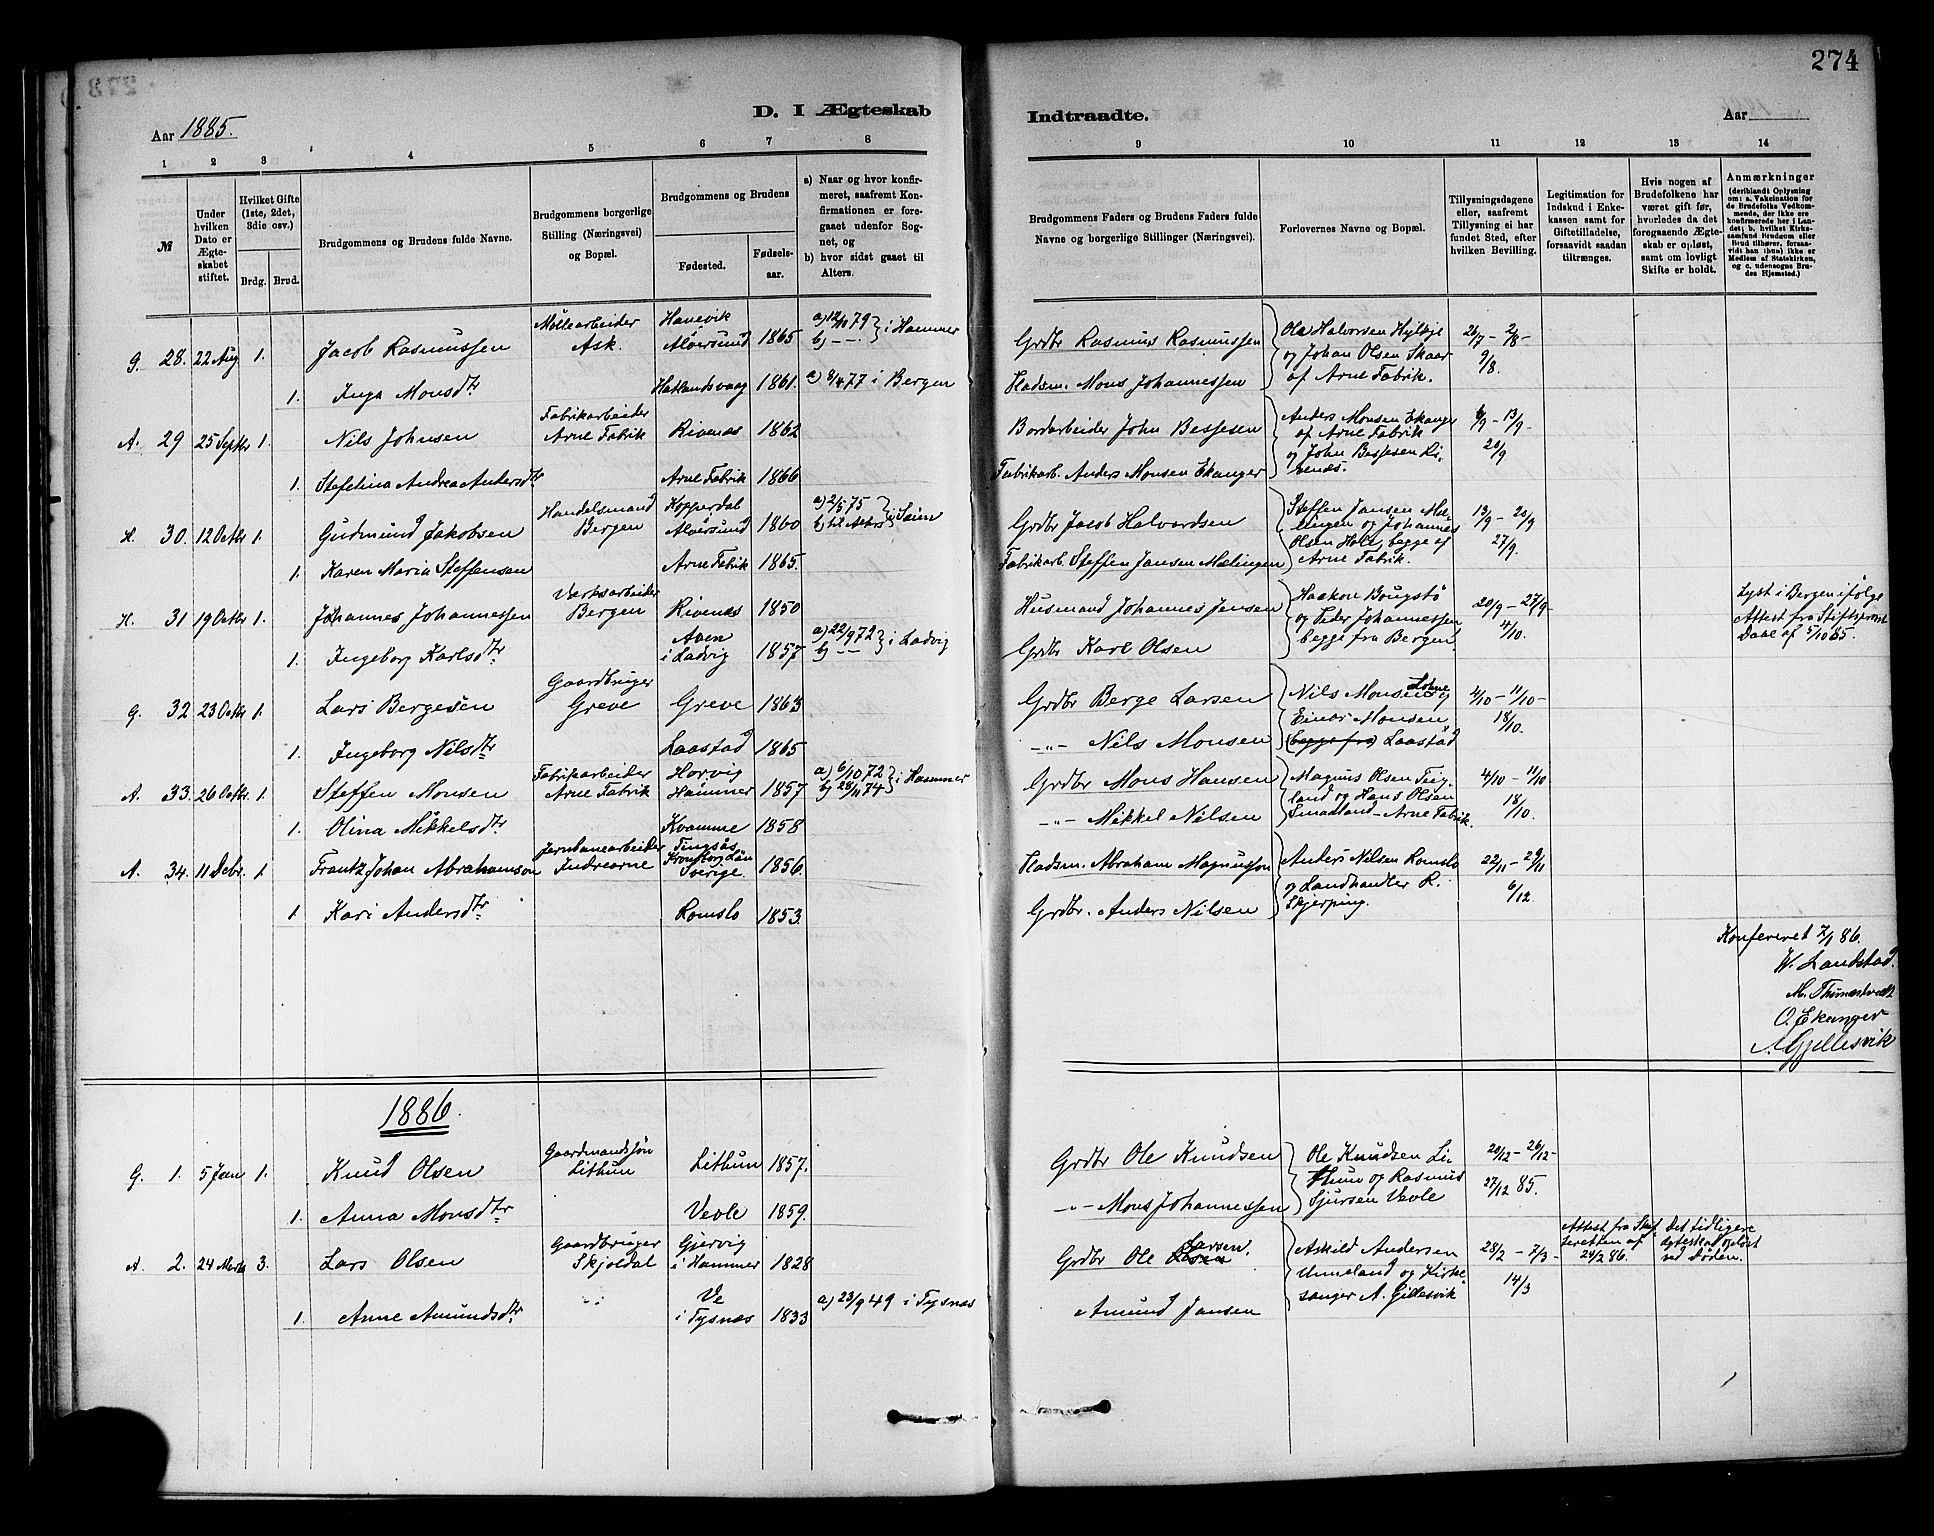 274
D. I Ægteskab
Indtraadte.
Aar 1885.
Aar
1 2 3 4 5 6 7 8
9 10 11 12 13 14
№
Under hvilken Dato er Ægteskabet stiftet.
Hvilket Gifte (1ste, 2det, 3die osv.)
Brdg. Brud.
Brudgommens og Brudens fulde Navne.
Brudgommens borgerlige Stilling (Næringsvei) og Bopæl.
Brudgommens og Brudens
Fødested.
Fødselsaar.
a) Naar og hvor konfirmeret, saafremt Konfirmationen er foregaaet udenfor Sognet, og
b) hvor sidst gaaet til Alters.
Brudgommens Faders og Brudens Faders fulde Navne og borgerlige Stillinger (Næringsvei).
Forlovernes Navne og Bopæl.
Tillysningsdagene eller, saafremt Tillysning ei har fundet Sted, efter hvilken Bevilling.
Legitimation for Indskud i Enkekassen samt for Giftetilladelse, forsaavidt saadan tiltrænges.
Hvis nogen af Brudefolkene har været gift før, hvorledes da det foregaaende Ægteskab er opløst, samt om lovligt Skifte er holdt.
Anmærkninger
(deriblandt Oplysning om: a. Vakcination for de Brudefolks Vedkommende, der ikke ere konfirmerede her i Landet; b. hvilket Kirkesamfund Brudgom eller Brud tilhører, forsaavidt han (hun) ikke er Medlem af Statskirken, og c. udensogns Brudes Hjemsted.)
G. 28. 22 Aug 1. Jacob Rasmussen Møllearbeider Ask. Hanevik Alversund 1865 a) 12/10 79 b) - - } i Hammer Grdbr Rasmus Rasmussen Ole Halvorsen Hylkje og Johan Olsen Skaar af Arne Fabrik. 26/7 - 2/8 - 9/8.
1. Inga Monsdtr Hatlandsvaag 1861. a) 8/4 77 i Bergen Hadsm. Mons Johannessen
A. 29 25 Septbr 1. Nils Johnsen Fabrikarbeider Arne Fabrik Rivenæs 1862 Bordarbeider John Bessesen Anders Monsen Ekanger af Arne Fabrik og John Bessesen Rivenæs. 6/9 - 13/9 - 20/9
1. Stefelina Andrea Andersdtr Arne Fabrik 1866 Fabrikarb. Anders Monsen Ekanger
H. 30. 12 Octbr 1. Gudmund Jakobsen Handelsmand Bergen Kopperdal Alversund 1860 a) 2/5 75 Grdbr Jacob Halvardsen Steffen Jansen Mælingen og Johannes Olsen Hole, begge af Arne Fabrik. 13/9 - 20/9 27/9.
1. Karen Maria Steffensen Arne Fabrik 1865. Fabrikarb. Steffen Jansen Mælingen
H. 31 19 Octbr 1. Johannes Johannessen Værksarbeider Bergen Rivenæs 1850 Husmand Johannes Jensen Haakon Brugstø og Peder Johannessen begge fra Bergen 20/9 - 27/9 - 4/10. Lyst i Bergen ifølge Attest fra Stiftsprovst Daae af 5/10 85.
1. Ingeborg Karlsdtr Aven i Ladvig 1857 a) 22/9 72 b) - - } i Ladvig Grdbr Karl Olsen
G. 32 23 Octbr 1. Lars Bergesen Gaardbruger Greve Greve 1863 Grdbr Berge Larsen Nils Monsen Lone og Einar Monsen (begge fra) Laastad 4/10 - 11/10 - 18/10.
1. Ingeborg Nilsdtr Laastad 1865 -"- Nils Monsen
A. 33. 26 Octbr 1. Steffen Monsen Fabrikarbeider Arne Fabrik Horvig Hammer 1857 a) 6/10 72 b) 28/11 74 } i Hammer Grdbr Mons Hansen Magnus Olsen Teigland og Hans Olsen Smaaland - Arne Fabrik. 4/10 - 11/10 18/10.
1. Olina Mikkelsdtr Kvamme 1858 -"- Mikkel Nilsen
A. 34. 11 Debr. 1. Frantz Johan Abrahamson Jernbanearbeider Indrearne Tingsås Kronoborg Län Sverige. 1856. Hadsm. Abraham Magnusson Anders Nilsen Romslo og Landhandler R. Skjerping. 22/11 - 29/11 6/12
1. Kari Andersdtr Romslo 1853. Grdbr. Anders Nilsen
Konfereret 7/1 86.
W. Landstad.
M. Thunestvedt
O. Ekanger
A. Gjellesvik
1886.
G. 1. 5 Jan 1. Knud Olsen Gaardmandssøn Lithun Lithun 1857. Grdbr Ole Knudsen Ole Knudsen Lithun og Rasmus Sjursen Vevle 20/12 - 26/12 - 27/12 85.
1. Anna Monsdtr Vevle 1859. -"- Mons Johannessen
A. 2. 24 Marts 3. Lars Olsen Gaardbruger Skjoldal Gjervig i Hammer 1828 Grdbr Ole Larsen. Askild Andersen Unneland og Kirkesanger A. Gillesvik 28/2 - 7/3 - 14/3 Attest fra Skifteretten af 24/2 86. Det tidligere ægteskab opløst ved Døden.
1. Anne Amundsdtr Ve i Tysnæs 1833 a) 23/9 49 i Tysnæs Amund Jansen